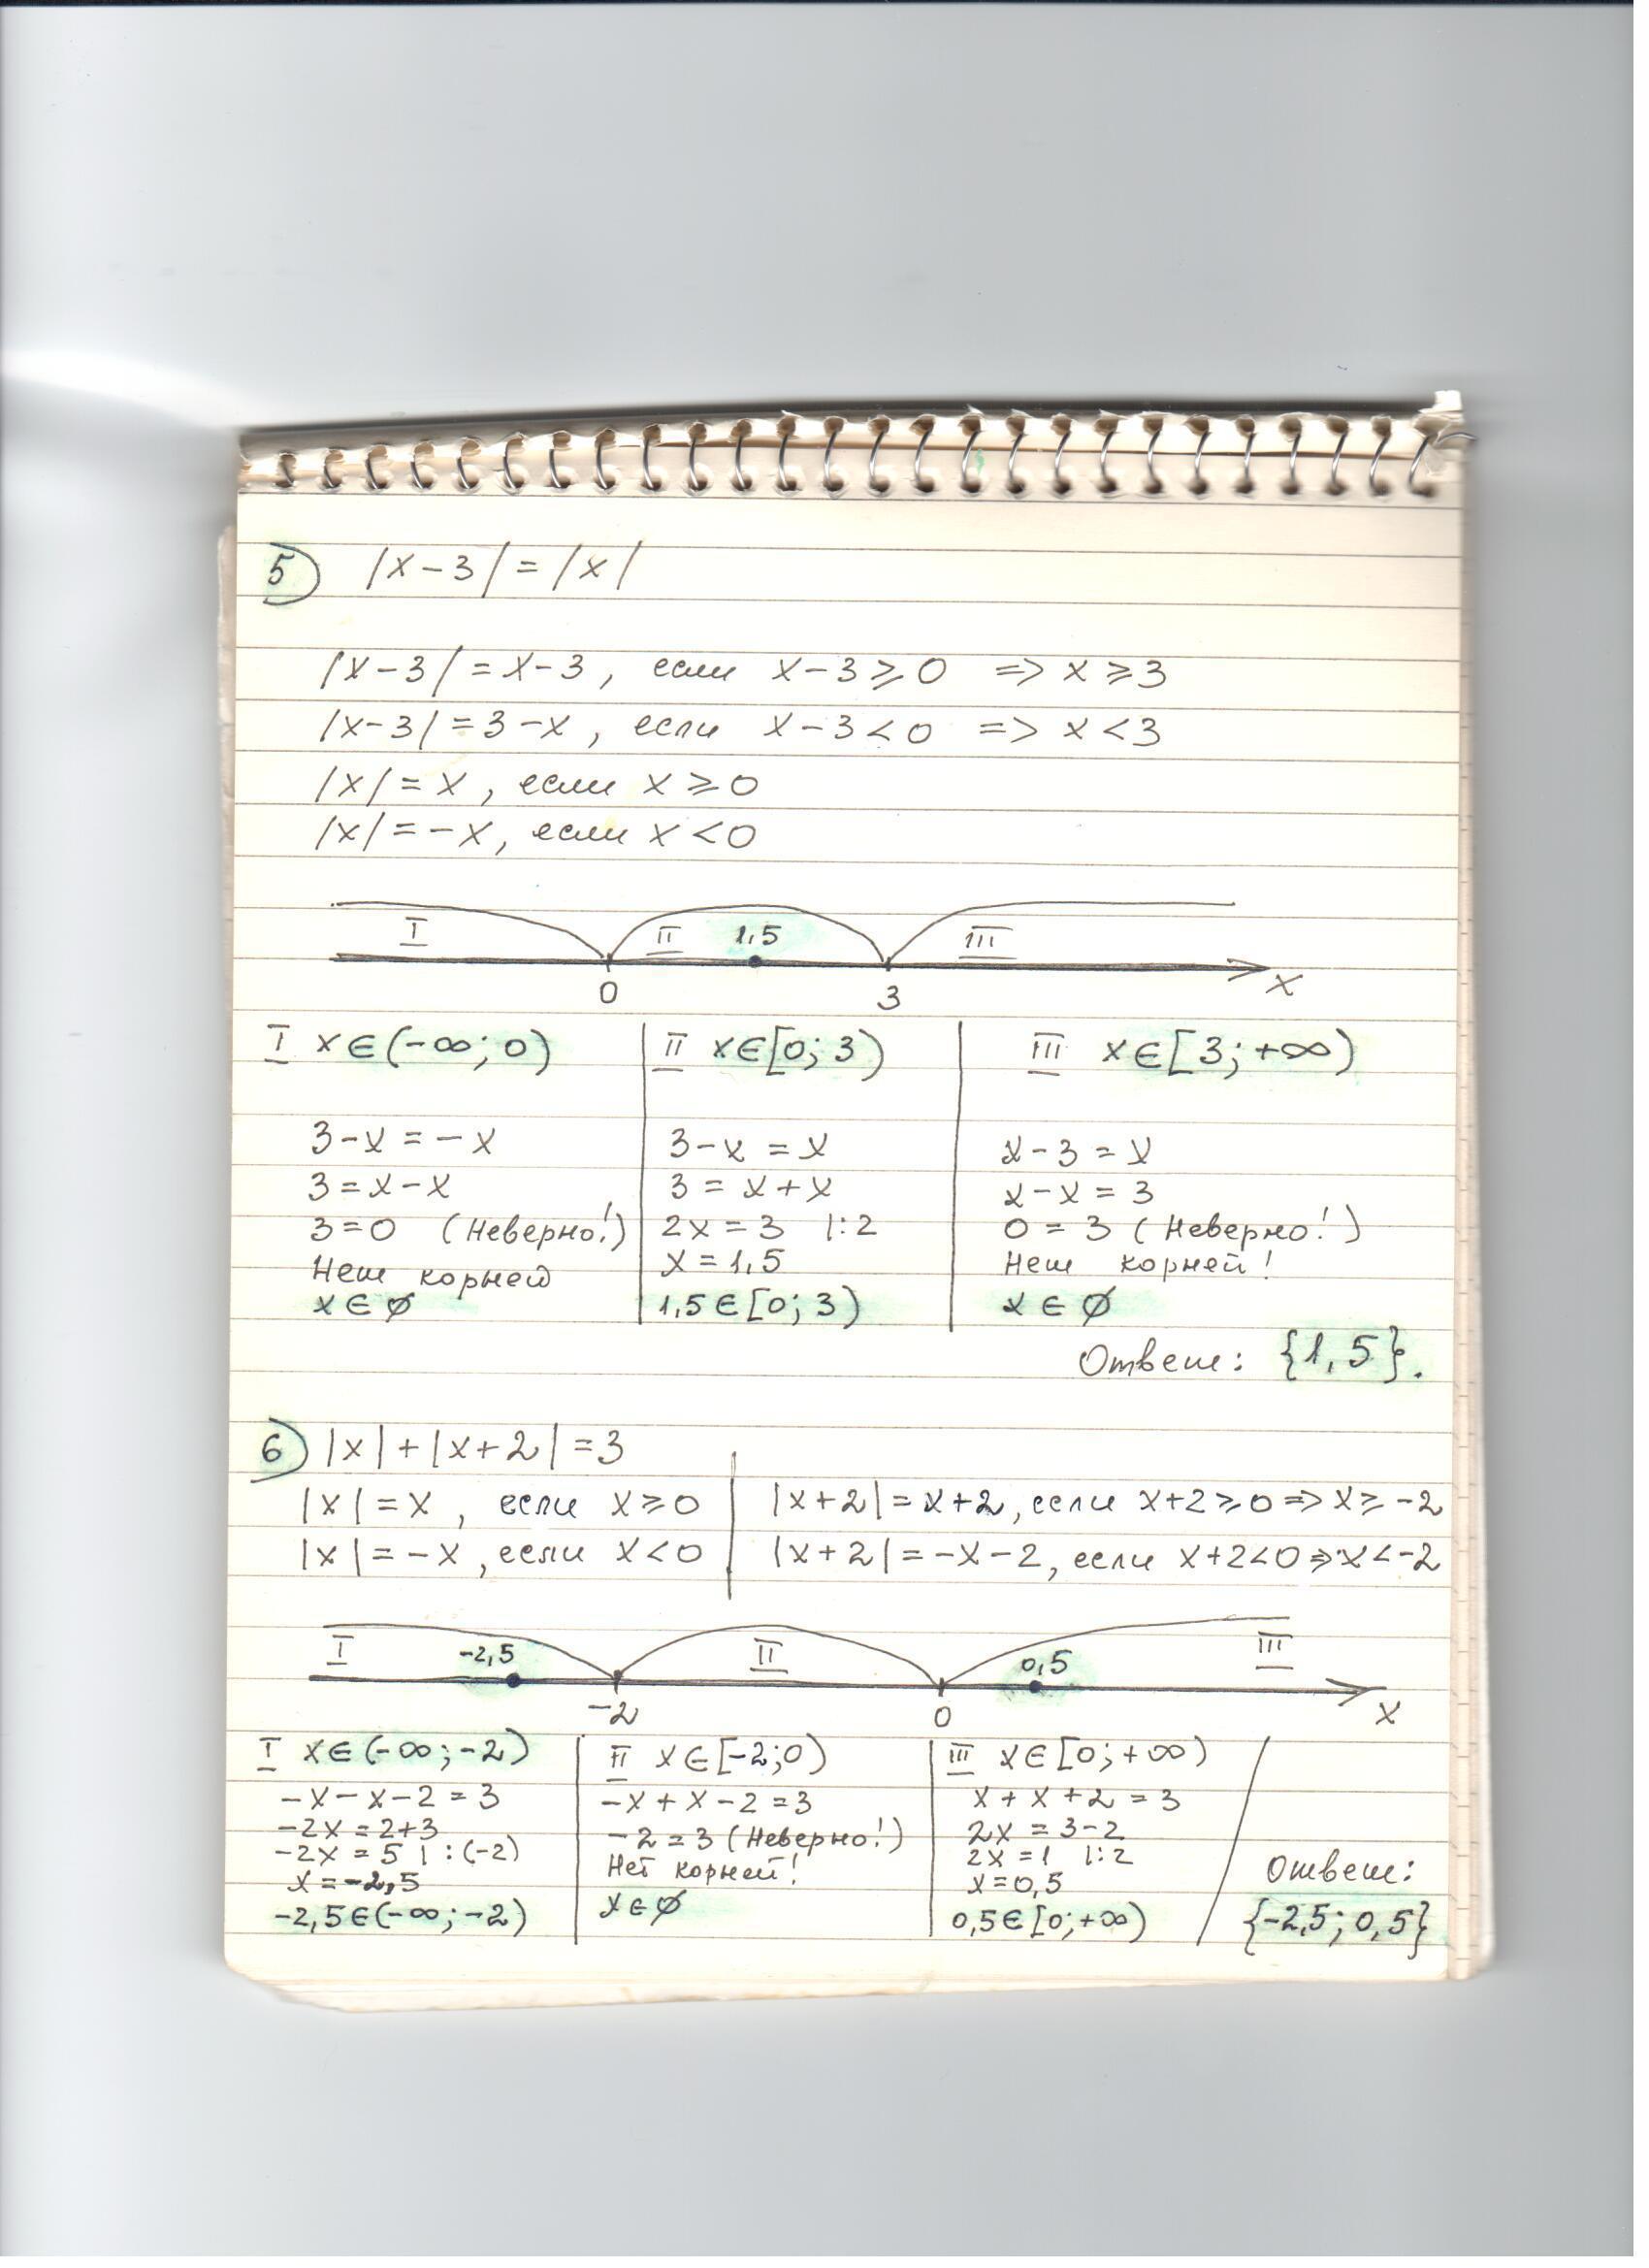 5) |x-3| = |x|
|x-3| = x-3, если x-3⩾0 => x⩾3
|x-3| = 3-x, если x-3<0 => x<3
|x| = x, если x⩾0
|x| = -x, если x<0
I II 1,5 III
0 3 x
I x∈(-∞; 0)
3-x = -x
3 = x-x
3=0 (Неверно!)
Нет корней
x∈∅
II x∈[0; 3)
3-x = x
3 = x+x
2x = 3 |:2
x = 1,5
1,5∈[0; 3)
III x∈[3; +∞)
x-3 = x
x-x = 3
0 = 3 (Неверно!)
Нет корней!
x∈∅
Ответ: {1,5}.
6) |x| + |x+2| = 3
|x| = x, если x⩾0
|x| = -x, если x<0
|x+2| = x+2, если x+2⩾0 => x⩾-2
|x+2| = -x-2, если x+2<0 => x<-2
I -2,5 II 0,5 III
-2 0 x
I x∈(-∞; -2)
-x-x-2 = 3
-2x = 2+3
-2x = 5 |:(-2)
x = -2,5
-2,5∈(-∞; -2)
II x∈[-2; 0)
-x+x-2 = 3
-2=3 (Неверно!)
Нет корней!
x∈∅
III x∈[0; +∞)
x+x+2 = 3
2x = 3-2
2x = 1 |:2
x = 0,5
0,5∈[0; +∞)
Ответ:
{-2,5; 0,5}